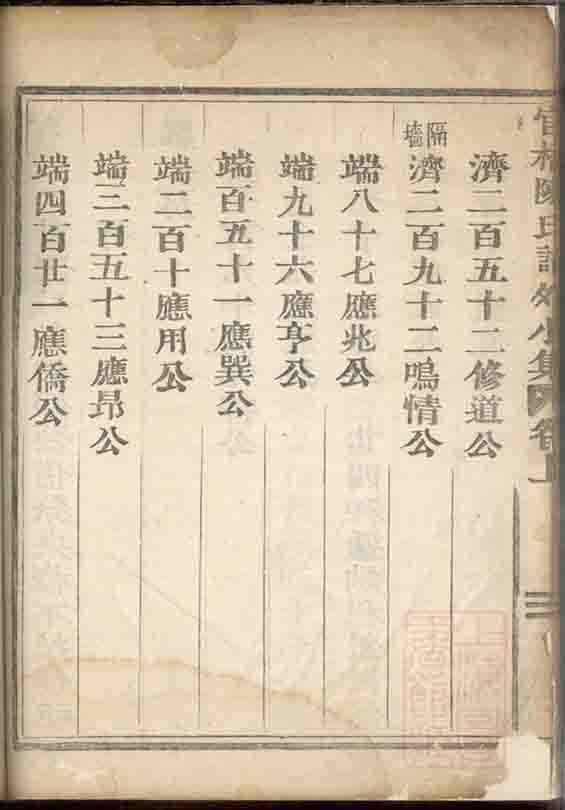 陳氏譜外小集 卷上
濟二百五十二修道公
隔墻
濟二百九十二鳴情公
端八十七應兆公
端九十六應亨公
端百五十一應巽公
端二百十應用公
端三百五十三應昂公
端四百廿一應僑公